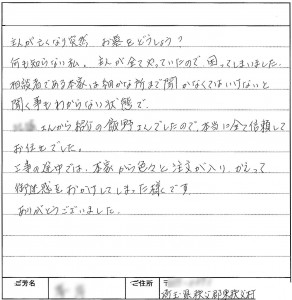 主人が亡くなり突然 お墓をどうしよう?
何も知らない私。主人が全てやっていたので困ってしまいました。
相談者である本家は細かな所まで聞かなくてはいけないと
聞く事もわからない状態で
さんから紹介の飯野さんでしたので、本当に全て信頼して
お任せでした。
工事の途中では、本家から色々と注文が入り、かえって
御迷惑をおかけしてしまった様です
ありがとうございました。
ご芳名
ご住所
〒
埼玉県秩父郡東秩父村